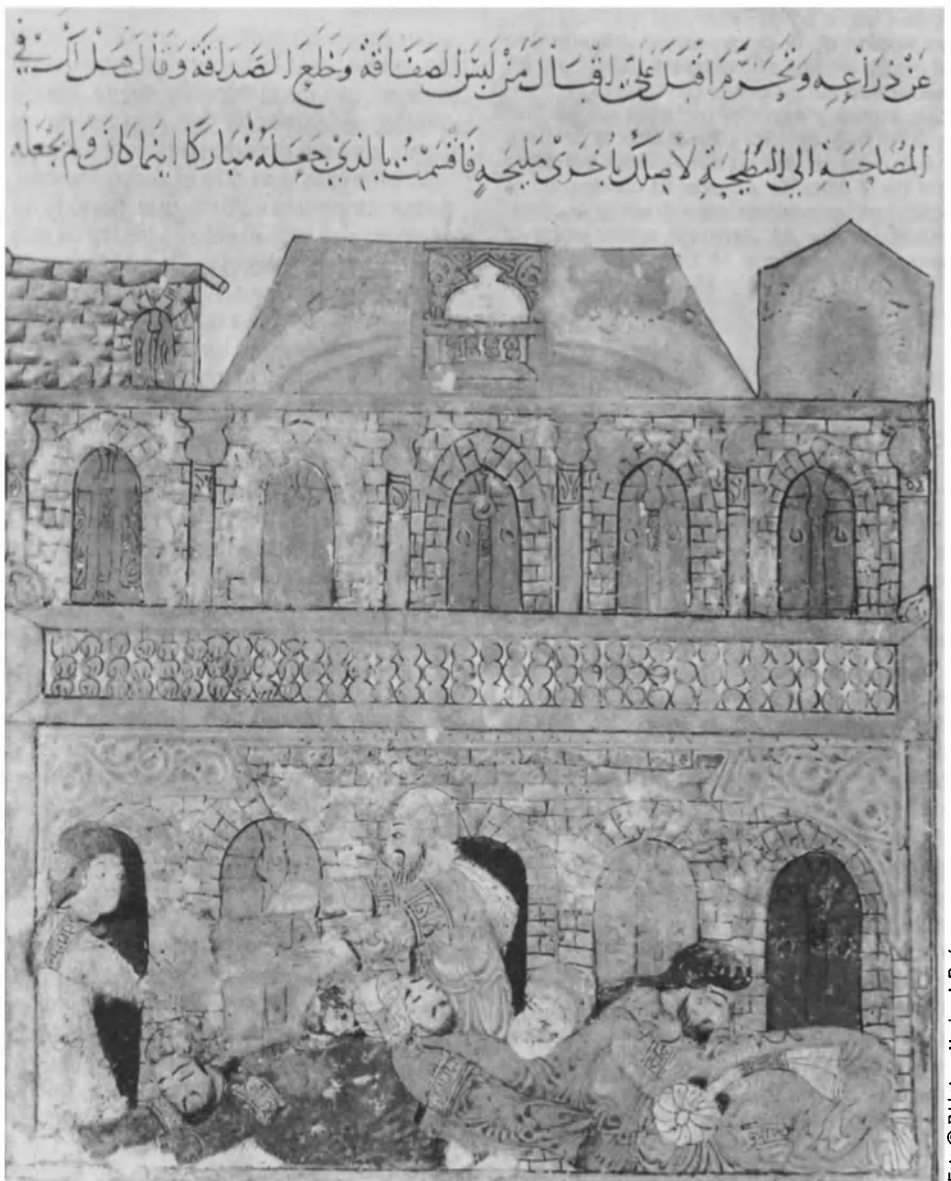 عن ذراعه وتحزم اقبل علي اقبال من لبس الصفاقة وخلع الصداقة وقال هل لك في
المصاحبة الي البطيحة لاصلك باخرى مليحه فاقسمت بالذي جعله مباركا اينما كان ولم يجعله